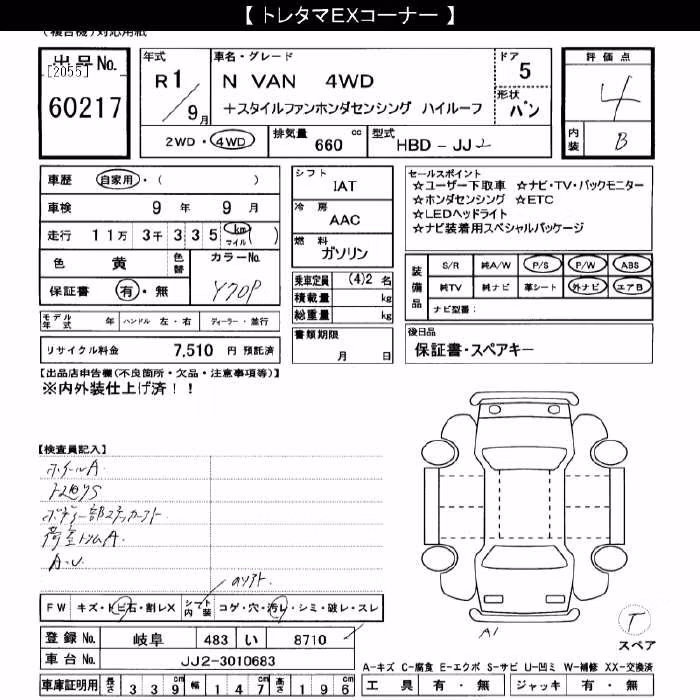 【 トレタマEXコーナー 】
(複合機)対応用紙
出品No.
[2055]
60217
年式
R1/9月
車名・グレード
N VAN 4WD
+スタイルファンホンダセンシング ハイルーフ
ドア
5
形状
バン
評価点
4
内装
B
2WD・4WD
排気量
660 cc
型式
HBD-JJ2
車歴 自家用・( )
車検 9年 9月
走行 11万 3千 3 3 5 km マイル ( )
色 黄
色替
カラーNo.
Y70P
保証書 有・無
シフト
IAT
冷房
AAC
燃料
ガソリン
乗車定員 (4)2 名
積載量 kg
総重量 kg
セールスポイント
☆ユーザー下取車 ☆ナビ・TV・バックモニター
☆ホンダセンシング ☆ETC
☆LEDヘッドライト
☆ナビ装着用スペシャルパッケージ
装備品
S/R 純A/W P/S P/W ABS
純TV 純ナビ 革シート 外ナビ エアB
ナビ型番:
モデル年式 年 ハンドル 左・右 ディーラー・並行
リサイクル料金 7,510 円 預託済
書類期限
月 日
後日品
保証書・スペアキー
【出品店申告欄(不良箇所・欠品・注意事項等)】
※内外装仕上げ済!!
【検査員記入】
ホイールA
ボディー部ステッカー
荷室トリムA
A・U
FW キズ・トビ石・割レX
シート内装 コゲ・穴・汚レ・シミ・破レ・スレ
A1
T
スペア
登録No. 岐阜 483 い 8710
車台No. JJ2-3010683
車庫証明用 長さ 339 cm 幅 147 cm 高さ 196 cm
A-キズ C-腐食 E-エクボ S-サビ U-凹ミ W-補修 XX-交換済
工具 有・無 ジャッキ 有・無